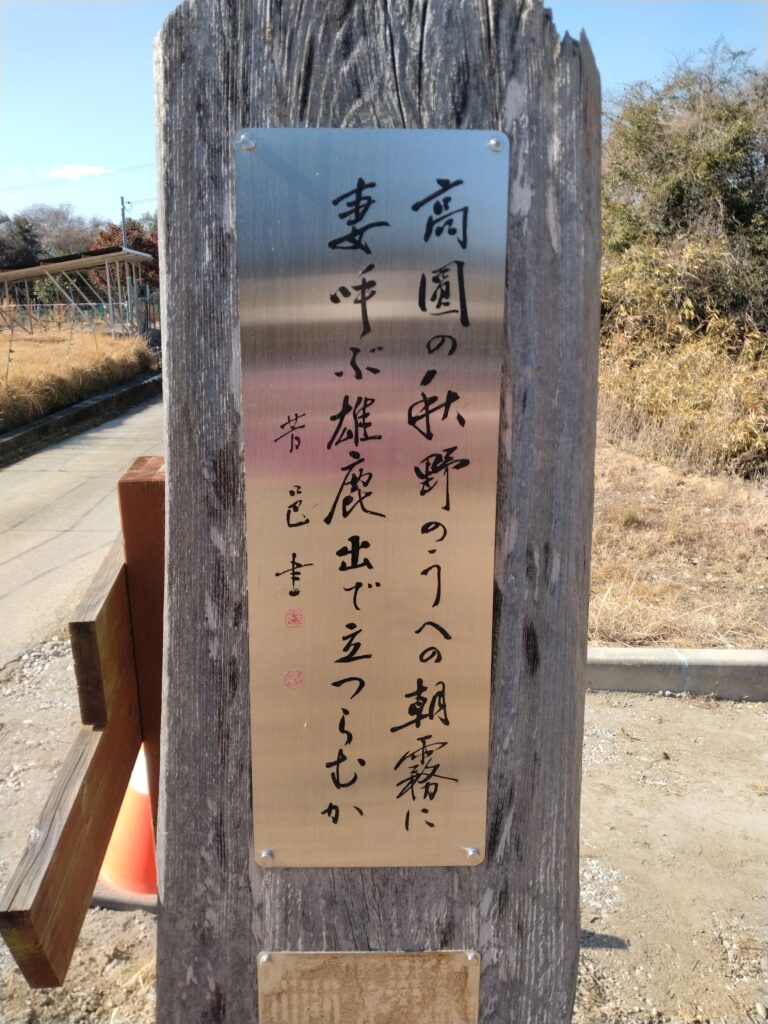 高圓の秋野のうへの朝霧に
妻呼ぶ雄鹿出で立つらむか
昔邑書